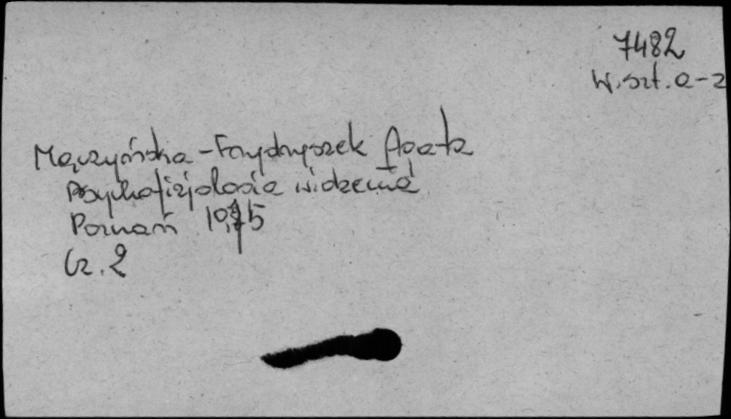 7482
W.szt. a-z
Mączyńska-Frydryszek Agata
Psychofizjologia widzenia
Poznań 1975
Cz. 2